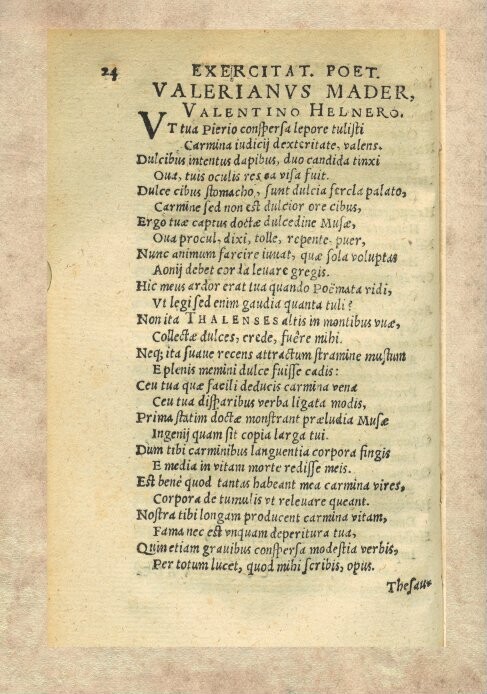 24 EXERCITAT. POET.
VALERIANVS MADER,
VALENTINO HELNERO.
VT tua Pierio conſperſa lepore tuliſti
Carmina iudicij dexteritate, valens.
Dulcibus intentus dapibus, duo candida tinxi
Oua, tuis oculis res ea viſa fuit.
Dulce cibus ſtomacho, ſunt dulcia fercla palato,
Carmine ſed non eſt dulcior ore cibus,
Ergo tuæ captus doctæ dulcedine Muſæ,
Oua procul, dixi, tolle, repente, puer,
Nunc animum farcire iuuat, quæ ſola voluptas
Aonij debet corda leuare gregis.
Hic meus ardor erat tua quando Poëmata vidi,
Vt legi ſed enim gaudia quanta tuli?
Non ita THALENSES altis in montibus vuæ,
Collectæ dulces, crede, fuêre mihi.
Neq; ita ſuaue recens attractum ſtramine muſtum
E plenis memini dulce fuiſſe cadis:
Ceu tua quæ facili deducis carmina vena
Ceu tua diſparibus verba ligata modis,
Prima ſtatim doctæ monſtrant præludia Muſæ
Ingenij quam ſit copia larga tui.
Dum tibi carminibus languentia corpora fingis
E media in vitam morte rediſſe meis.
Eſt benè quod tantas habeant mea carmina vires,
Corpora de tumulis vt releuare queant.
Noſtra tibi longam producent carmina vitam,
Fama nec eſt vnquam deperitura tua,
Quin etiam grauibus conſperſa modeſtia verbis,
Per totum lucet, quod mihi ſcribis, opus.
Theſau-